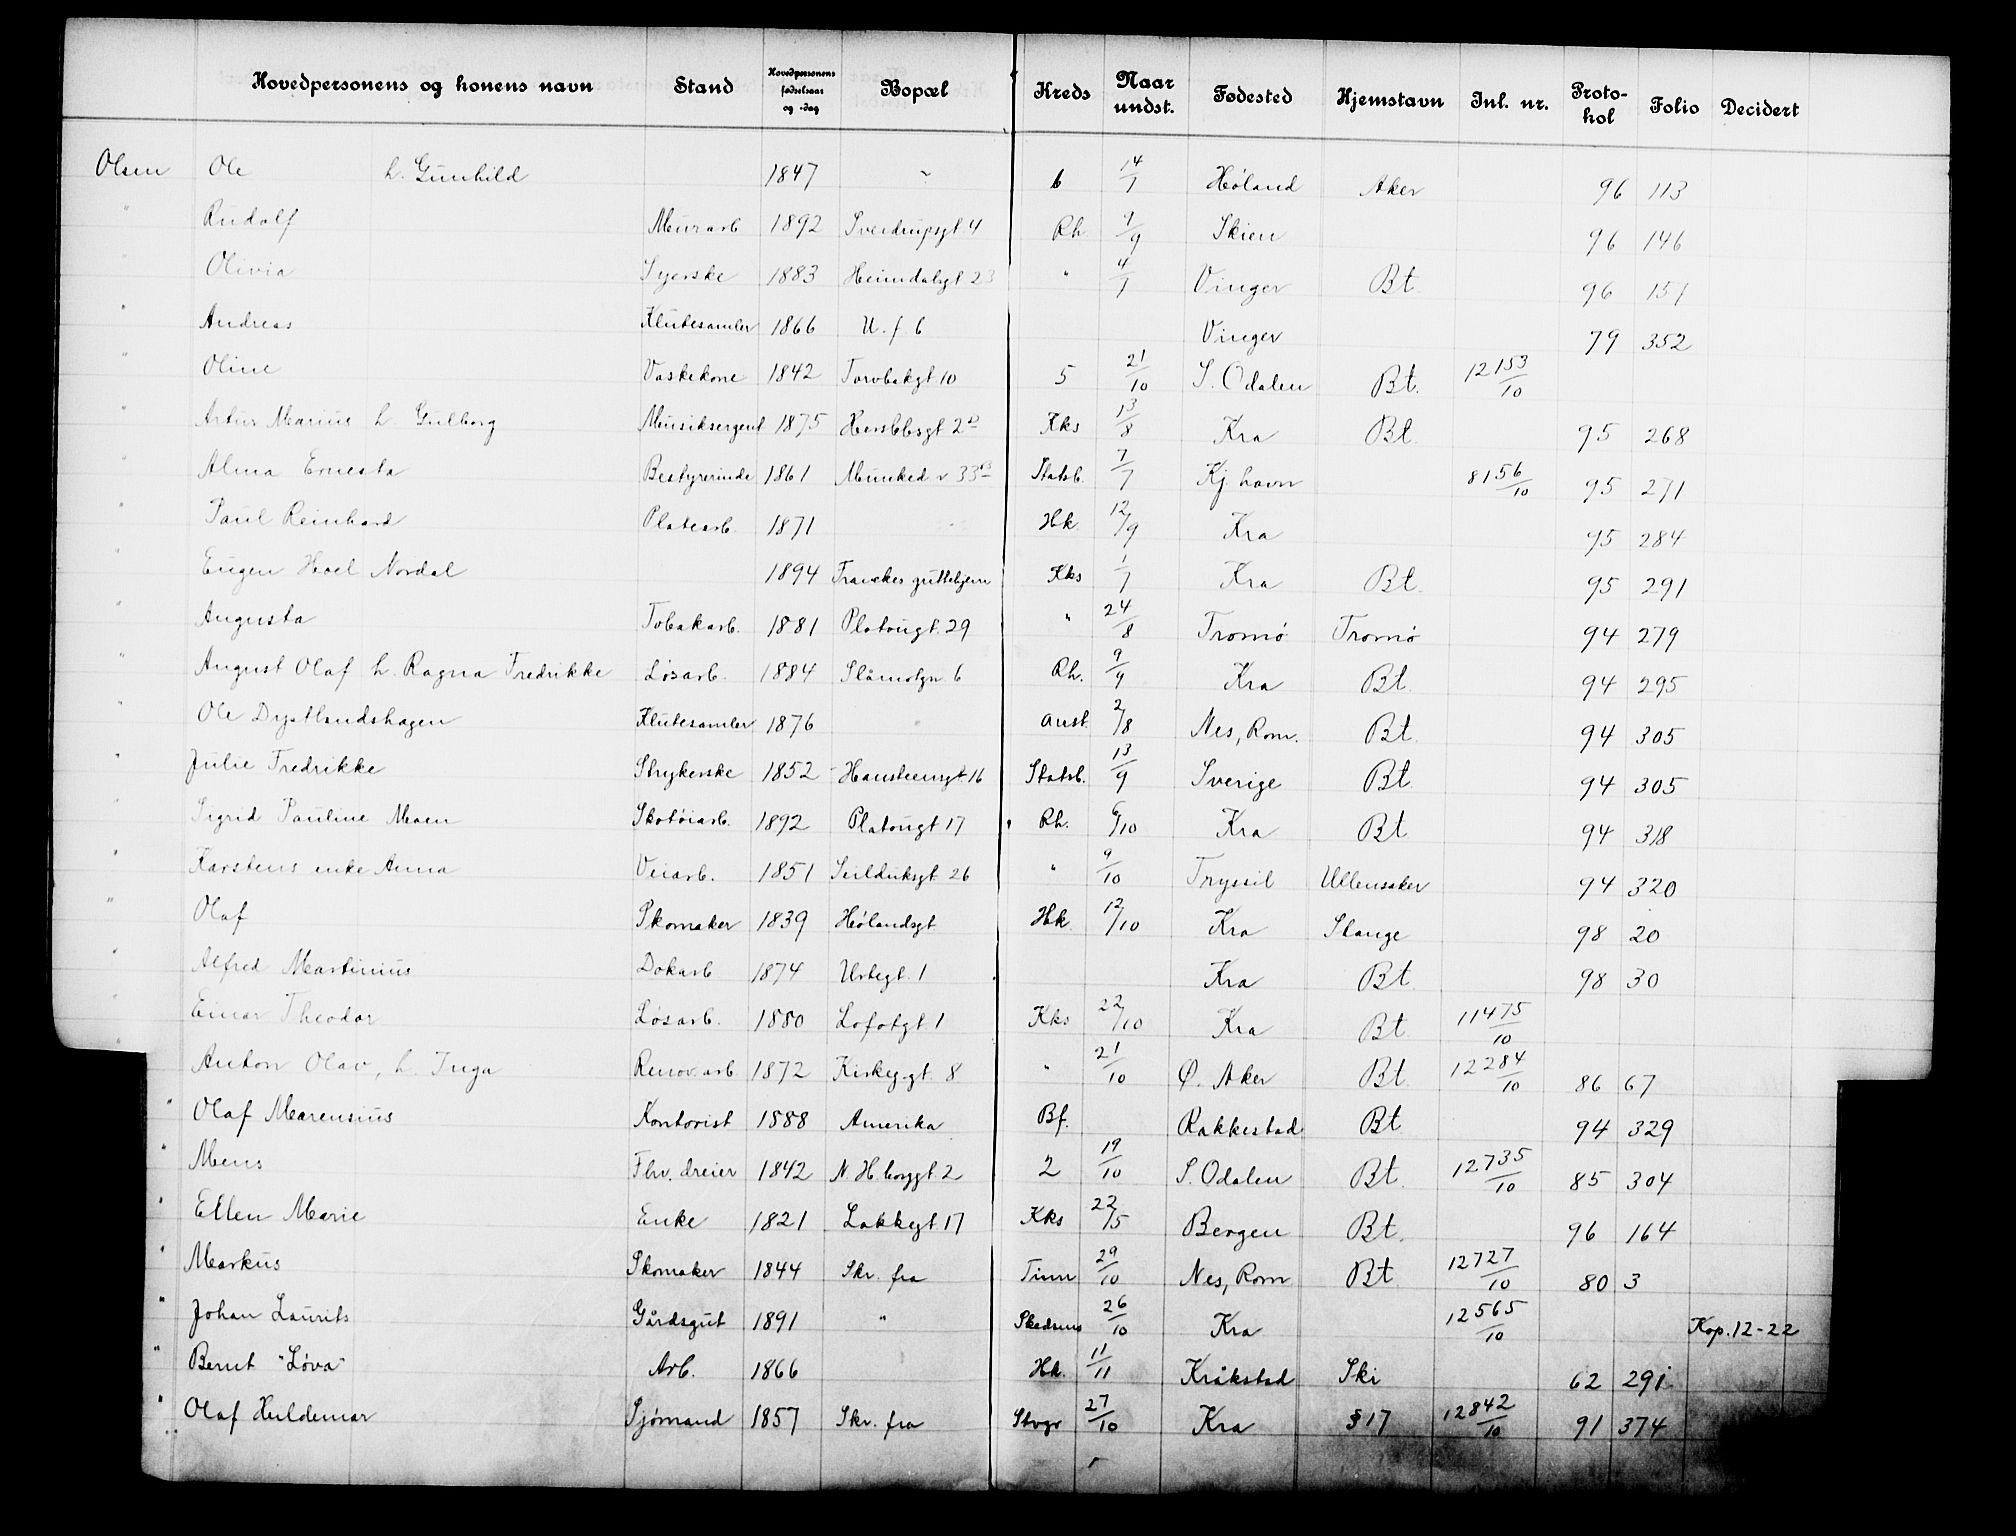 Hovedpersonens og konens navn Stand Hovedpersonens fødselsaar og -dag Bopæl Kreds Naar undst. Fødested Hjemstavn Inl. nr. Protokol Folio Decidert
Olsen Ole h. Gunhild 1847 " 6 14/7 Høland Aker 96 113
" Rudolf Murarb 1892 Sverdrupsgt 4 Rh 9/9 Skien 96 146
" Olivia Syerske 1883 Heimdalsgt 23 " 4/7 Vinger Bt. 96 157
" Andreas Klutesamler 1866 U. f. 6 Vinger 79 352
" Oline Vaskekone 1842 Torvbakgt 10 5 21/10 S. Odalen Bt. 12153/10
" Artur Marius h. Gulborg Musiksergent 1875 Herslebsgt 2 Kks 13/8 Kra Bt. 95 268
" Alma Ernesta Bestyrerinde 1861 Munked v 33 Statsb. 7/7 Kj.havn 8156/10 95 271
" Paul Reinhard Platearb. 1871 Hk 12/9 Kra 95 284
" Eugen Hoel Nordal 1894 Franckes guttehjem Kks 1/7 Kra Bt. 95 291
" Augusta Tobakarb. 1881 Platougt. 29 " 24/8 Tromø Tromø 94 279
" August Olaf h. Ragna Fredrikke Løsarb. 1884 Slåmotgn. 6 Rh. 9/9 Kra Bt. 94 295
" Ole Dystlandshagen Klutesamler 1876 " Aust. 2/8 Nes, Rom. Bt. 94 305
" Julie Fredrikke Strykerske 1852 Hansteensgt. 16 Statsb. 13/9 Sverige Bt. 94 305
" Sigrid Pauline Moen Skotøiarb. 1892 Platougt 17 Rh. 6/10 Kra Bt. 94 318
" Karstens enke Anna Veiarb. 1851 Seilduksgt 26 " 9/10 Tryssil Ullensaker 94 320
" Olaf Skomaker 1839 Hølandsgt Hk. 12/10 Kra Stange 98 20
" Alfred Martinius Dokarb 1874 Urtegt. 1 Kra Bt. 98 30
" Einar Theodor Løsarb. 1880 Lofotgt. 1 Kks 22/10 Kra Bt. 11475/10
" Anton Olav, h. Inga Renov.arb 1872 Kirkeg.gt. 8 " 21/10 Ø. Aker Bt. 12284/10 86 67
" Olaf Marensius Kontorist 1888 Amerika Bf. Rakkestad Bt. 94 329
" Mens Fhv. dreier 1842 N. H.borggt 2 2 19/10 S. Odalen Bt. 12735/10 85 304
" Ellen Marie Enke 1821 Lakkegt 17 Kks 22/5 Bergen Bt. 96 164
" Markus Skomaker 1844 Skr. fra Tinn 29/10 Nes, Rom Bt. 12727/10 80 3
" Johan Laurits Gårdsgut 1891 " Skedsmo 26/10 Kra 12565/10 Kop. 12-22
" Bernt "Løva" Arb. 1866 Hk. 11/11 Kråkstad Ski 62 291
" Olaf Huldemar Sjømand 1857 Skr. fra Stvgr 27/10 Kra § 17 12842/10 91 374